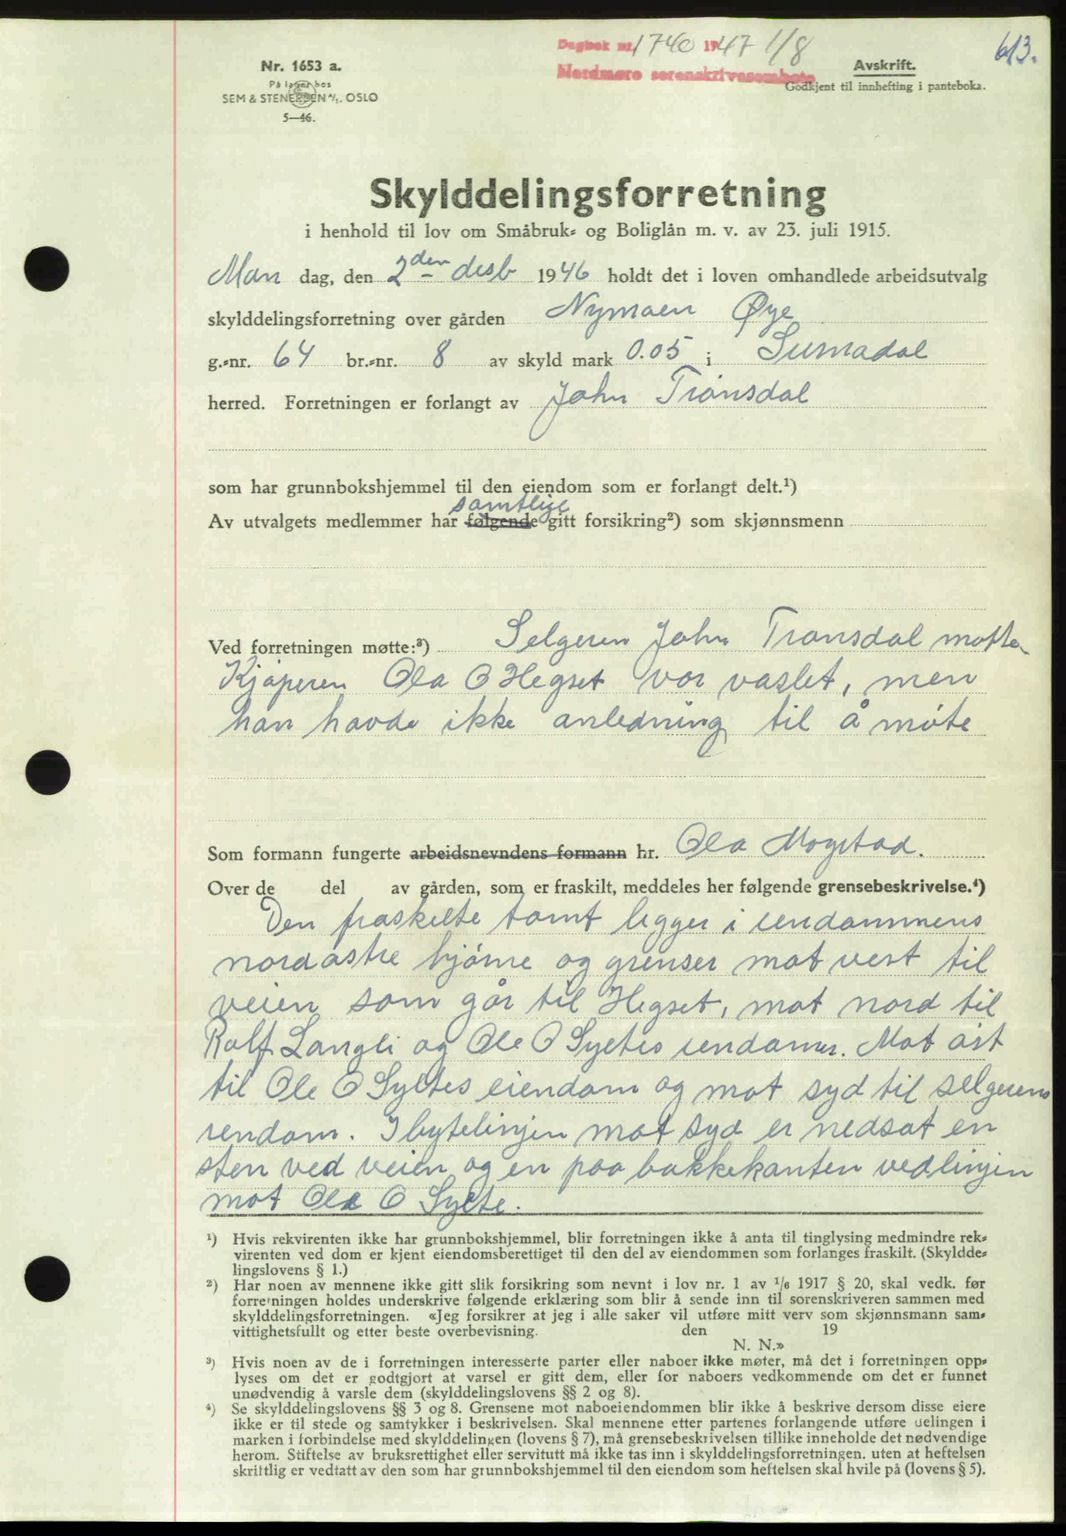 613.
Dagbok nr. 1740 1947 1/8
Nordmøre sorenskriverembete
Nr. 1653 a.
På lager hos
SEM & STENERSEN A/S. OSLO
5—46.
Avskrift.
Godkjent til innhefting i panteboka.
Skylddelingsforretning
i henhold til lov om Småbruk- og Boliglån m. v. av 23. juli 1915.
Man dag, den 2den desb 1946 holdt det i loven omhandlede arbeidsutvalg
skylddelingsforretning over gården Nymoen Øye
g.-nr. 64 br.-nr. 8 av skyld mark 0.05 i Surnadal
herred. Forretningen er forlangt av John Tronsdal
som har grunnbokshjemmel til den eiendom som er forlangt delt.¹)
samtlige
Av utvalgets medlemmer har følgende gitt forsikring²) som skjønnsmenn
Ved forretningen møtte:³) Selgeren John Tronsdal møtte
Kjøperen Ola O Hegset var vaslet, men
han havde ikke anledning til å møte
Som formann fungerte arbeidsnevndens formann hr. Ola Mogstad.
Over de del av gården, som er fraskilt, meddeles her følgende grensebeskrivelse.⁴)
Den fraskilte tomt ligger i eiendommens
nordøstre hjørne og grenser mot vest til
veien som går til Hegset, mot nord til
Rolf Langli og Ole O Syltes eiendomer. Mot øst
til Ole O Syltes eiendom og mot syd til selgerens
eiendom. I bytelinjen mot syd er nedsat en
sten ved veien og en paa bakkekanten ved linjen
mot Ole O Sylte.
¹) Hvis rekvirenten ikke har grunnbokshjemmel, blir forretningen ikke å anta til tinglysing medmindre rek-
virenten ved dom er kjent eiendomsberettiget til den del av eiendommen som forlanges fraskilt. (Skyldde-
lingslovens § 1.)
²) Har noen av mennene ikke gitt slik forsikring som nevnt i lov nr. 1 av 1/6 1917 § 20, skal vedk. før
forretningen holdes underskrive følgende erklæring som blir å sende inn til sorenskriveren sammen med
skylddelingsforretningen. «Jeg forsikrer at jeg i alle saker vil utføre mitt verv som skjønnsmann sam-
vittighetsfullt og etter beste overbevisning. den 19
N. N.»
³) Hvis noen av de i forretningen interesserte parter eller naboer ikke møter, må det i forretningen opp-
lyses om det er godtgjort at varsel er gitt dem, eller for naboers vedkommende om det er funnet
unødvendig å varsle dem (skylddelingslovens §§ 2 og 8).
⁴) Se skylddelingslovens §§ 3 og 8. Grensene mot naboeiendommen blir ikke å beskrive dersom disse eiere
ikke er til stede og samtykker i beskrivelsen. Skal mennene etter partenes forlangende utføre delingen i
marken i forbindelse med skylddelingen (lovens § 7), må grensebeskrivelsen tillike inneholde det nødvendige
herom. Stiftelse av bruksrettighet eller servitutt må ikke tas inn i skylddelingsforretningen. uten at heftelsen
skriftlig er vedtatt av den som har grunnbokshjemmel til den eiendom som heftelsen skal hvile på (lovens § 5).